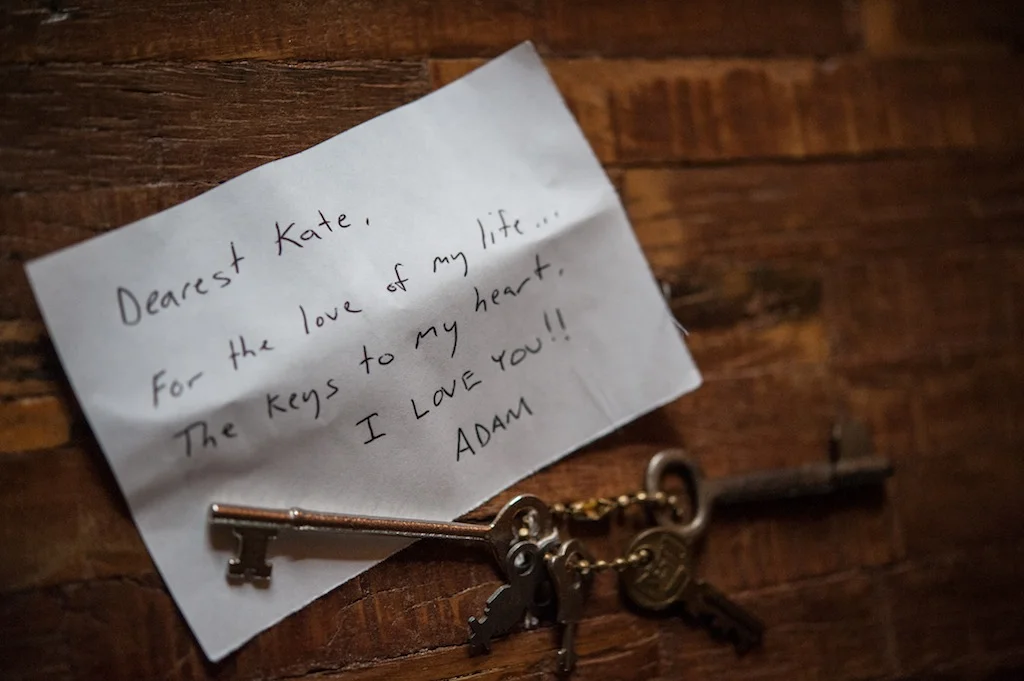 Dearest Kate,
For the love of my life...
The keys to my heart.
I LOVE YOU!!
ADAM